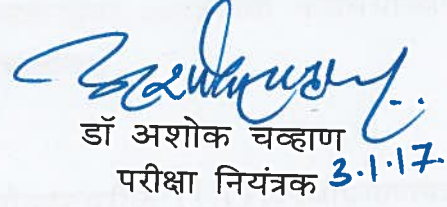 डॉ अशोक चव्हाण
परीक्षा नियंत्रक 3.1.17